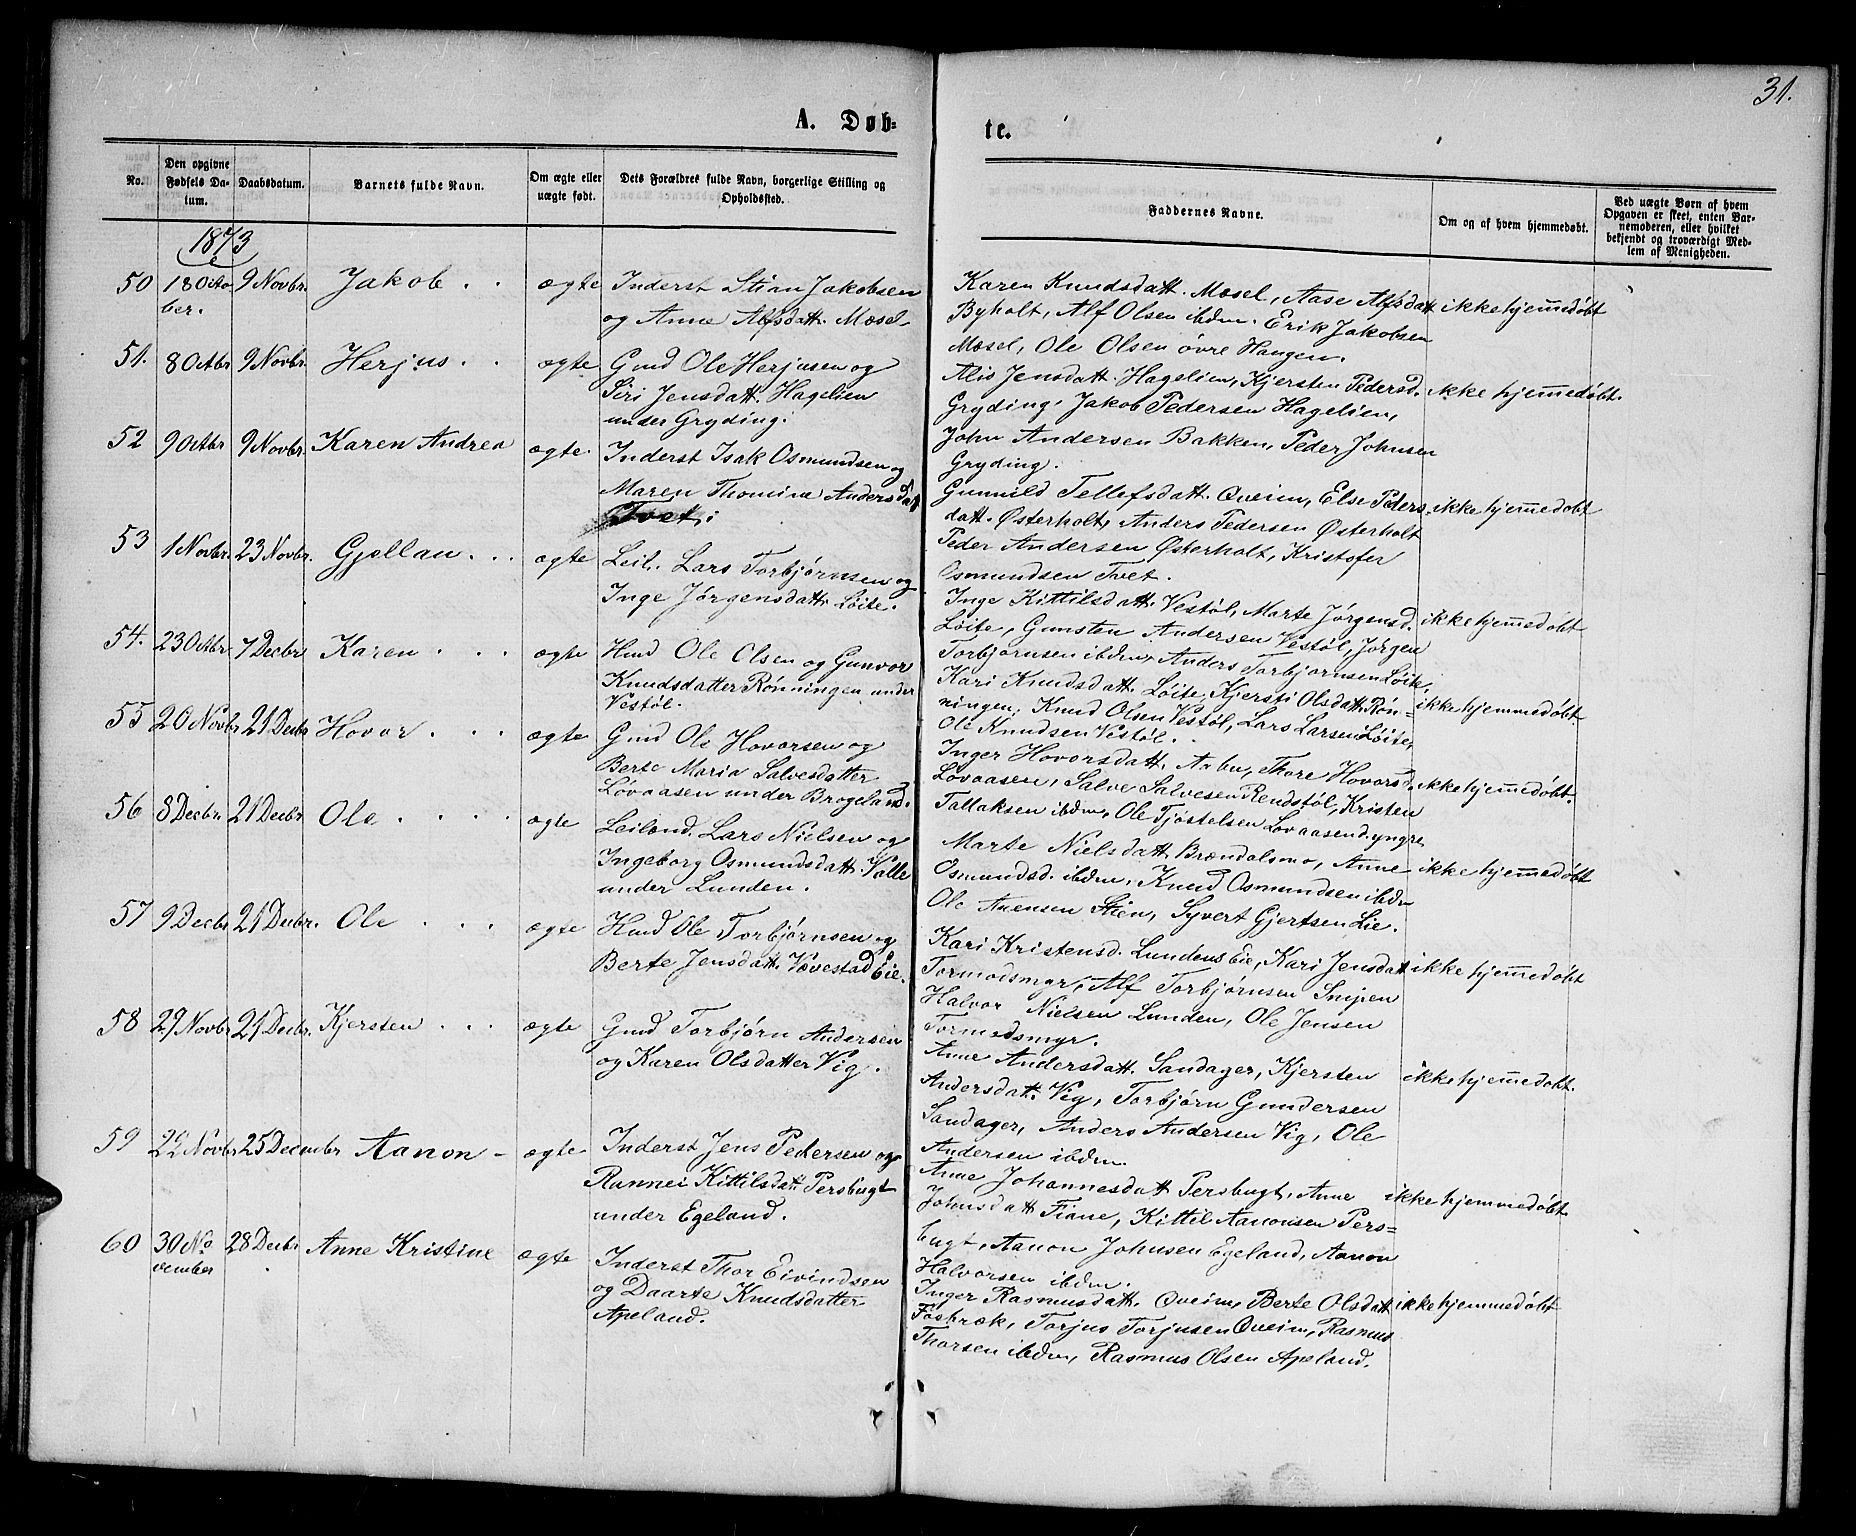 31.
A. Døb=
te.
No.
Den opgivne Fødsels Da-tum.
Daabsdatum.
Barnets fulde Navn.
Om ægte eller uægte født.
Dets Forældres fulde Navn, borgerlige Stilling og Opholdssted.
Faddernes Navne.
Om og af hvem hjemmedøbt.
Ved uægte Børn af hvem Opgaven er skeet, enten Bar-nemoderen, eller hvilket bekjendt og troværdigt Med-lem af Menigheden.
1873
50 18 Octo ber. 9 Novbr. Jakob . . ægte
Inderst Stian Jakobsen
og Anne Alfsdatt. Mæsel
Karen Knudsdatt. Mæsel, Aase Alfsdatt ikke hjemedøbt
Byholt, Alf Olsen ibdm. Erik Jakobsen
Mæsel, Ole Olsen øvre Haugen.
51. 8 Octbr 9 Novbr. Herjus . . ægte
Gmd Ole Herjusen og
Siri Jensdatt. Hagelien
under Gryding.
Alis Jensdatt. Hagelien, Kjersten Pedersd. ikke hjemedøbt.
Gryding, Jakob Pedersen Hagelien,
John Andersen Bakken, Peder Johnsen
Gryding.
52 9 Octbr 9 Novbr. Karen Andrea ægte.
Inderst Isak Osmundsen og
Maren Thomine Andersdatt
Tvet.
Gunnild Tellefsdatt. Qveim, Else Peders- ikke hjemedøbt
datt. Østerholt, Anders Pedersen Østerholt
Peder Andersen Østerholt, Kristofer
Osmundsen Tvet.
53 1 Novbr. 23 Novbr. Gjellau . . . ægte
Leil. Lars Torbjørnsen og
Inge Jørgensdatt. Løite.
Inge Kittilsdatt. Vestøl, Marte Jørgensd. ikke hjemedøbt
Løite, Gunsten Andersen Vestøl, Jørgen
Torbjørnsen ibdm, Anders Torbjørnsen Løite,
54. 23 Octbr. 7 Decbr Karen . . . ægte
Hmd Ole Olsen og Gunvor
Knudsdatter Rønningen under
Vestøl.
Kari Knudsdatt. Løite, Kjersti Olsdatt. Røn= ikke hjemmedøbt
ningen, Knud Olsen Vestøl, Lars Larsen Løite,
Ole Knudsen Vestøl.
55 20 Novbr 21 Decbr Hovor . . . ægte
Gmd Ole Hovorsen og
Berte Maria Salvesdatter
Løvaasen under Brogeland.
Inger Hovorsdatt. Aabu, Thore Hovorsd. ikke hjemedøbt.
Løvaasen, Salve Salvesen Rendstøl, Kristen
Tallaksen ibdm, Ole Tjøstelsen Løvaasen d. yngre
56 8 Decbr. 21 Decbr Ole . . . . ægte
Leilænd. Lars Nielsen og
Ingeborg Osmundsdatt. Valle
under Lunden.
Marte Nielsdatt. Brændalsmo, Anne ikke hjemedøbt
Osmundsd. ibdm, Knud Osmundsen ibdm
Ole Anensen Stien, Syvert Gjertsen Lie.
57 9 Decbr 21 Decbr. Ole . . . ægte
Hmd Ole Torbjørnsen og
Berte Jensdatt. Vævestad Eie.
Kari Kristensd. Lundens Eie, Kari Jensdatt ikke hjemedøbt
Tormodsmyr, Alf Torbjørnsen Snipen
Halvor Nielsen Lunden, Ole Jensen
Tormodsmyr.
58 29 Novbr 21 Decbr. Kjersten . . . ægte
Gmd Torbjørn Andersen
og Karen Olsdatter Vig.
Anne Andersdatt. Sandager, Kjersten ikke hjemedøbt.
Andersdatt. Vig, Torbjørn Gundersen
Sandager, Anders Andersen Vig, Ole
Andersen ibdm.
59 22 Novbr 25 December Aanon - ægte
Inderst Jens Pedersen og
Rannei Kittilsdatt. Persbugt
under Egeland.
Anne Johannesdatt Persbugt, Anne ikke hjemmedøbt
Johnsdatt Fiane, Kittil Aanonsen Pers=
bugt, Aanon Johnsen Egeland, Aanon
Halvorsen ibdm.
60 30 No vember 28 Decbr Anne Kristine ægte
Inderst Thor Eivindsen
og Daarte Knudsdatter
Apeland.
Inger Rasmusdatt. Qveim, Berte Olsdatt ikke hjemmedøbt
Fosbræk, Torjus Torjusen Qveim, Rasmus
Thorsen ibdm, Rasmus Olsen Apeland.